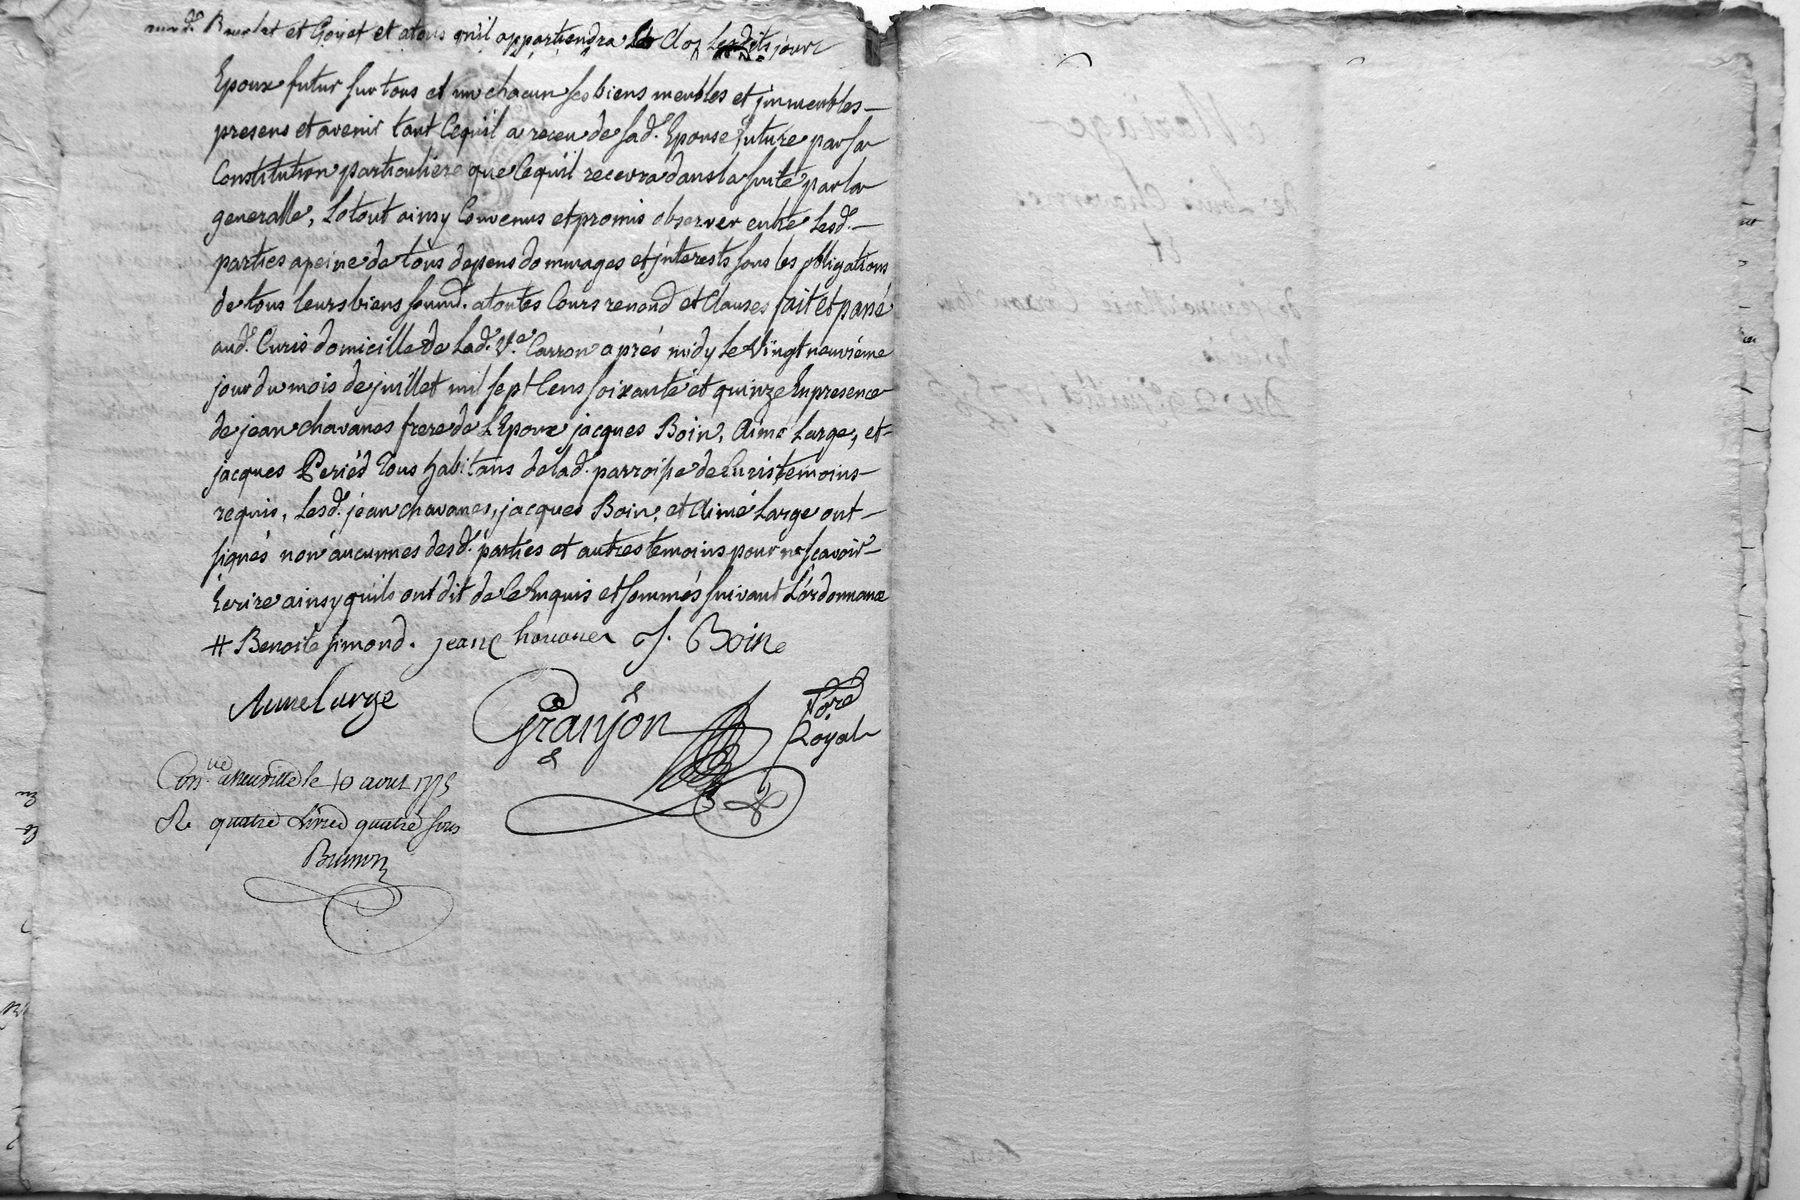 aux d. et Goyet et atous quil appartiendra Clos Lesdits jours
Epoux futur sur tous et un chacun ses biens meubles et jmmeubles
presens et avenir tant Cequil a receu de lad. Epouse future par la
Constitution particuliere que Cequil recevra dans la suite par la
generalle, Le tout ainsy Convenus et promis observer entre Lesd.
parties apeine de tous depens dommages et jnterests sous les obligations
de tous leurs biens soumd. atoutes Cours renond et Clauses fait et passé
aud. Curis domicille de Lad. Ve. Carron aprés midy Le Vingt neuvieme
jour du mois de juillet mil sept Cens soixante et quinze En presence
de jean chavanes frere de L'Epoux jacques Boin, Aimé Large, et
jacques Periés Tous habitans de lad. parroisse de Curis temoins
requis, Lesd. jean chavanes, jacques Boin, et Aimé Large ont
signés non aucunnes desd. parties et autres temoins pour ne sçavoir
Ecrire ainsy quils ont dit de ce Enquis et sommés suivant L'ordonnance
# Benoite simond. jean chavanes J. Boin
Aime Large
Granjon
Nore
Royal
Con. aneuville le 10 aout 1775
Re quatre Livres quatre sous
Brunon
Mariage
De Louis Chavanes
Et
De Carron
Du 29 juillet 1775